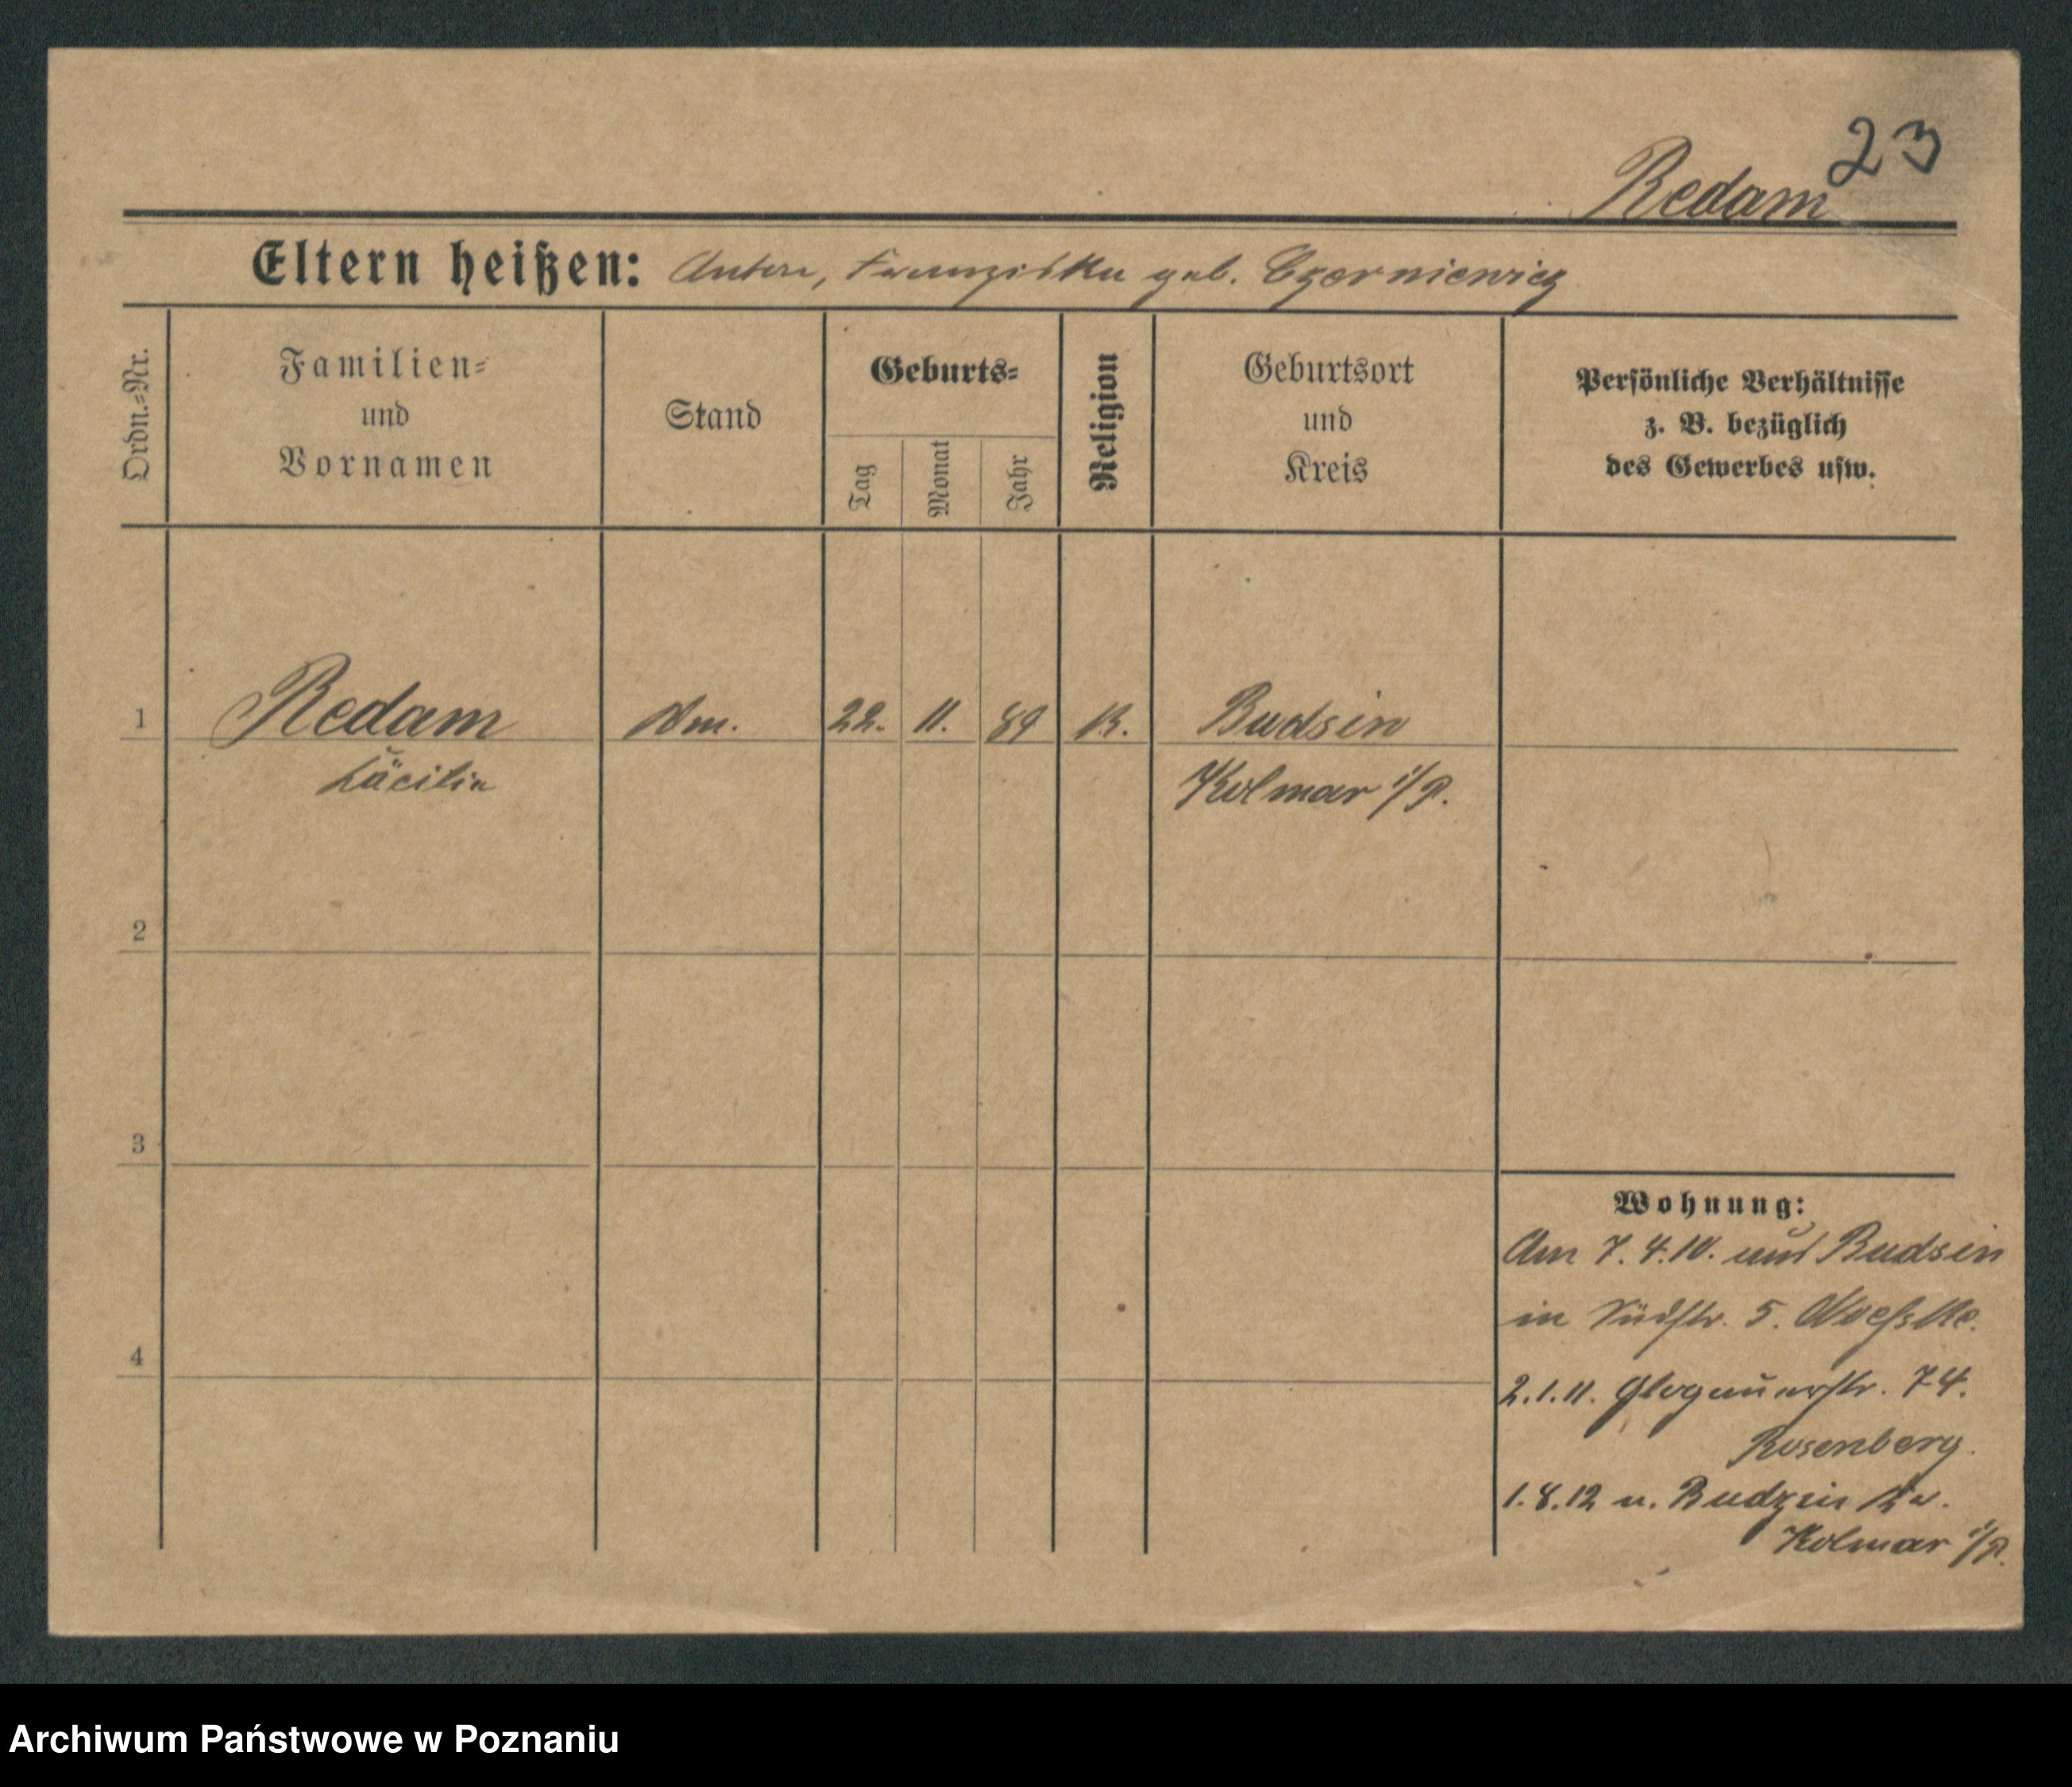 23
Redam
Eltern heißen: Anton, Franziska geb. Czerniewicz
Ordn.-Nr.
Familien-
und
Vornamen
Stand
Geburts-
Tag
Monat
Jahr
Religion
Geburtsort
und
Kreis
Persönliche Verhältnisse
z. B. bezüglich
des Gewerbes usw.
1 Redam 22. 11. 89 K. Budsin
Cäcilie Kolmar i/P.
2
3
4
Wohnung:
Am 7.4.10. aus Budsin
in Südstr. 5.
2.1.11. Glogauerstr. 74.
Rosenberg.
1.8.12 n. Budzin Kr.
Kolmar i/P.
Archiwum Państwowe w Poznaniu